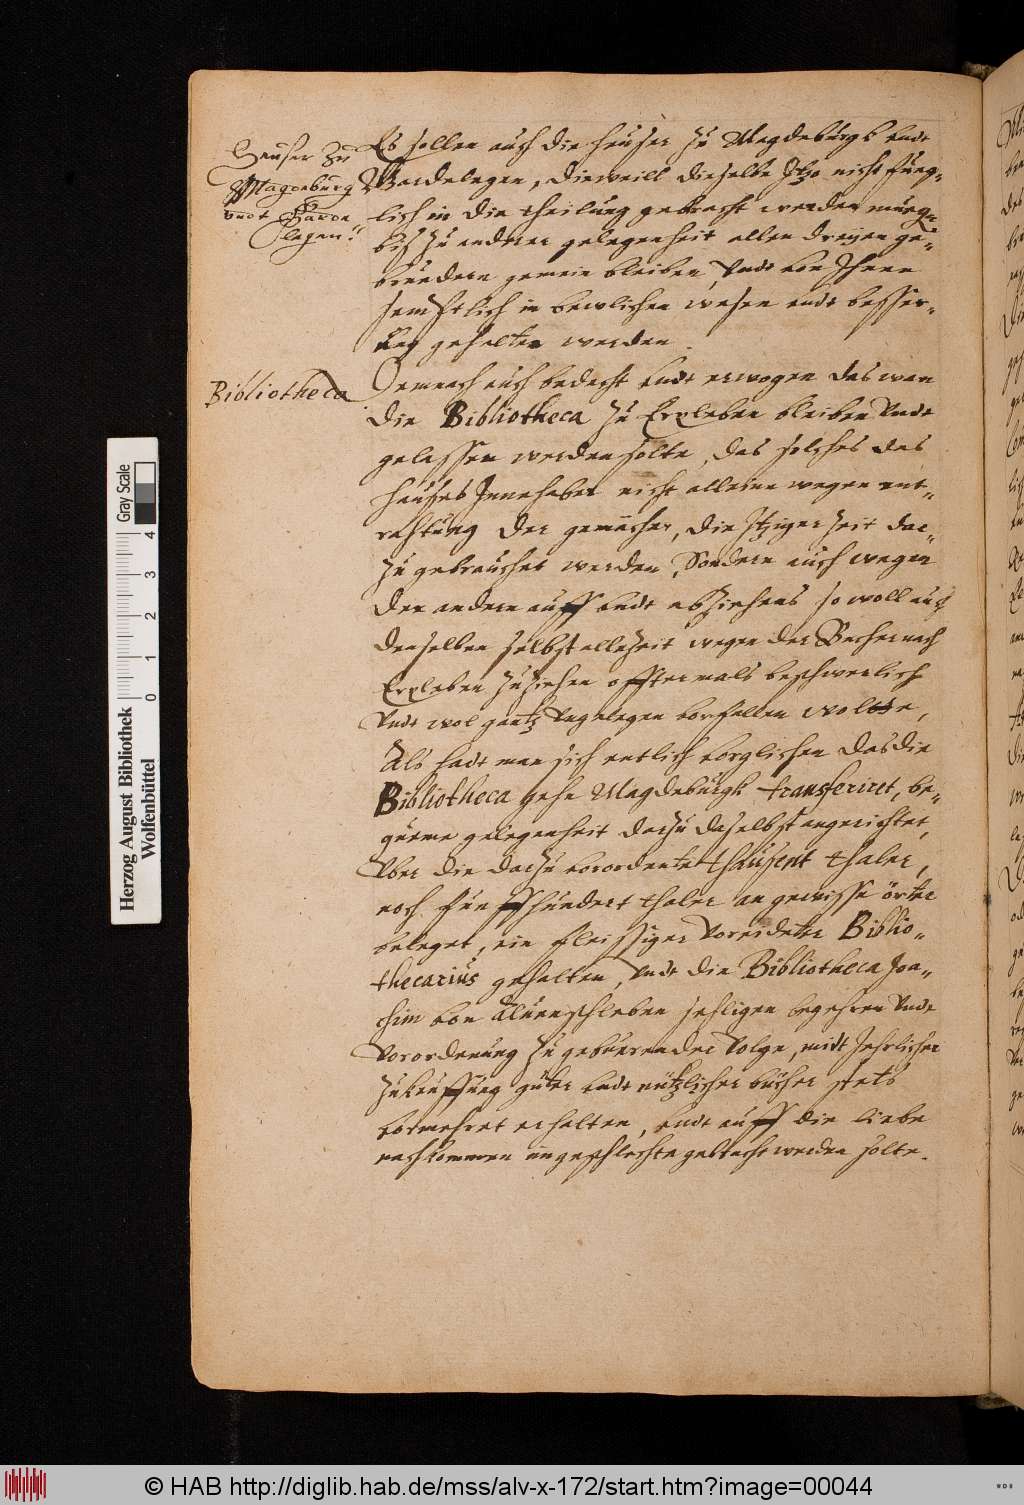 Heuser zu
Magdeburg
undt Garde
legen.
Es sollen auch die heuser zu Magdeburgk undt
Gardelegen, dieweill dieselbe Itzo nicht füeg-
lich in die theilung gebracht werden mueg-
bis zu anderer gelegenheit allen dreyen ge-
bruedern gemein bleiben, Undt von Ihnen
semptlich in bewlichen wesen undt besser-
ung gehalten werden.
Bibliotheca
Demnach auch bedacht undt erwogen das wan
die Bibliotheca zu Erxleben bleiben Undt
gelassen werden solte, das solches des
hauses Innehaber nicht alleine wegen ent-
rahtung der gemächer, die Itziger Zeit dar-
zu gebrauchet werden, Sondern auch wegen
der andern auff undt abziehens so woll auch
denselben selbst allezeit wegen der Bucher nach
Erxleben zuziehen offtermals beschwerlich
Undt wol gantz Ungelegen vorfallen wolte,
Als hadt man sich entlich vorglichen das die
Bibliotheca gehn Magdeburgk transferiret, be-
queme gelegenheit darzu daselbst angerichtet,
Uber die darzu vorordente thausent thaler,
noch fünffhundert thaler an gewisse örter
beleget, ein fleissiger Voreideter Biblio-
thecarius gehalten, Undt die Bibliotheca Joa-
chim von Aluenschleben sehligen begehren Undt
Vorordenung zu gebuerender Volge, midt Jehrlicher
zukauffung guter undt nützlicher bücher stets
vormehret erhalten, undt auff die liebe
nachkommen im geschlechte gebracht werden solte.
Herzog August Bibliothek
Wolfenbüttel
0 1 2 3 4
Gray Scale
© HAB http://diglib.hab.de/mss/alv-x-172/start.htm?image=00044